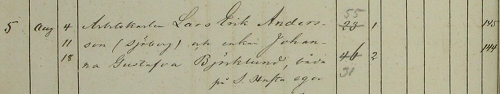 5 Aug 4 Arbetskarlen Lars Erik Anders- 55 23 1 145
11 son (Sjöberg) och enkan Johan-
18 na Gustafva Björklund, båda 46 2 144
på S. egor 31